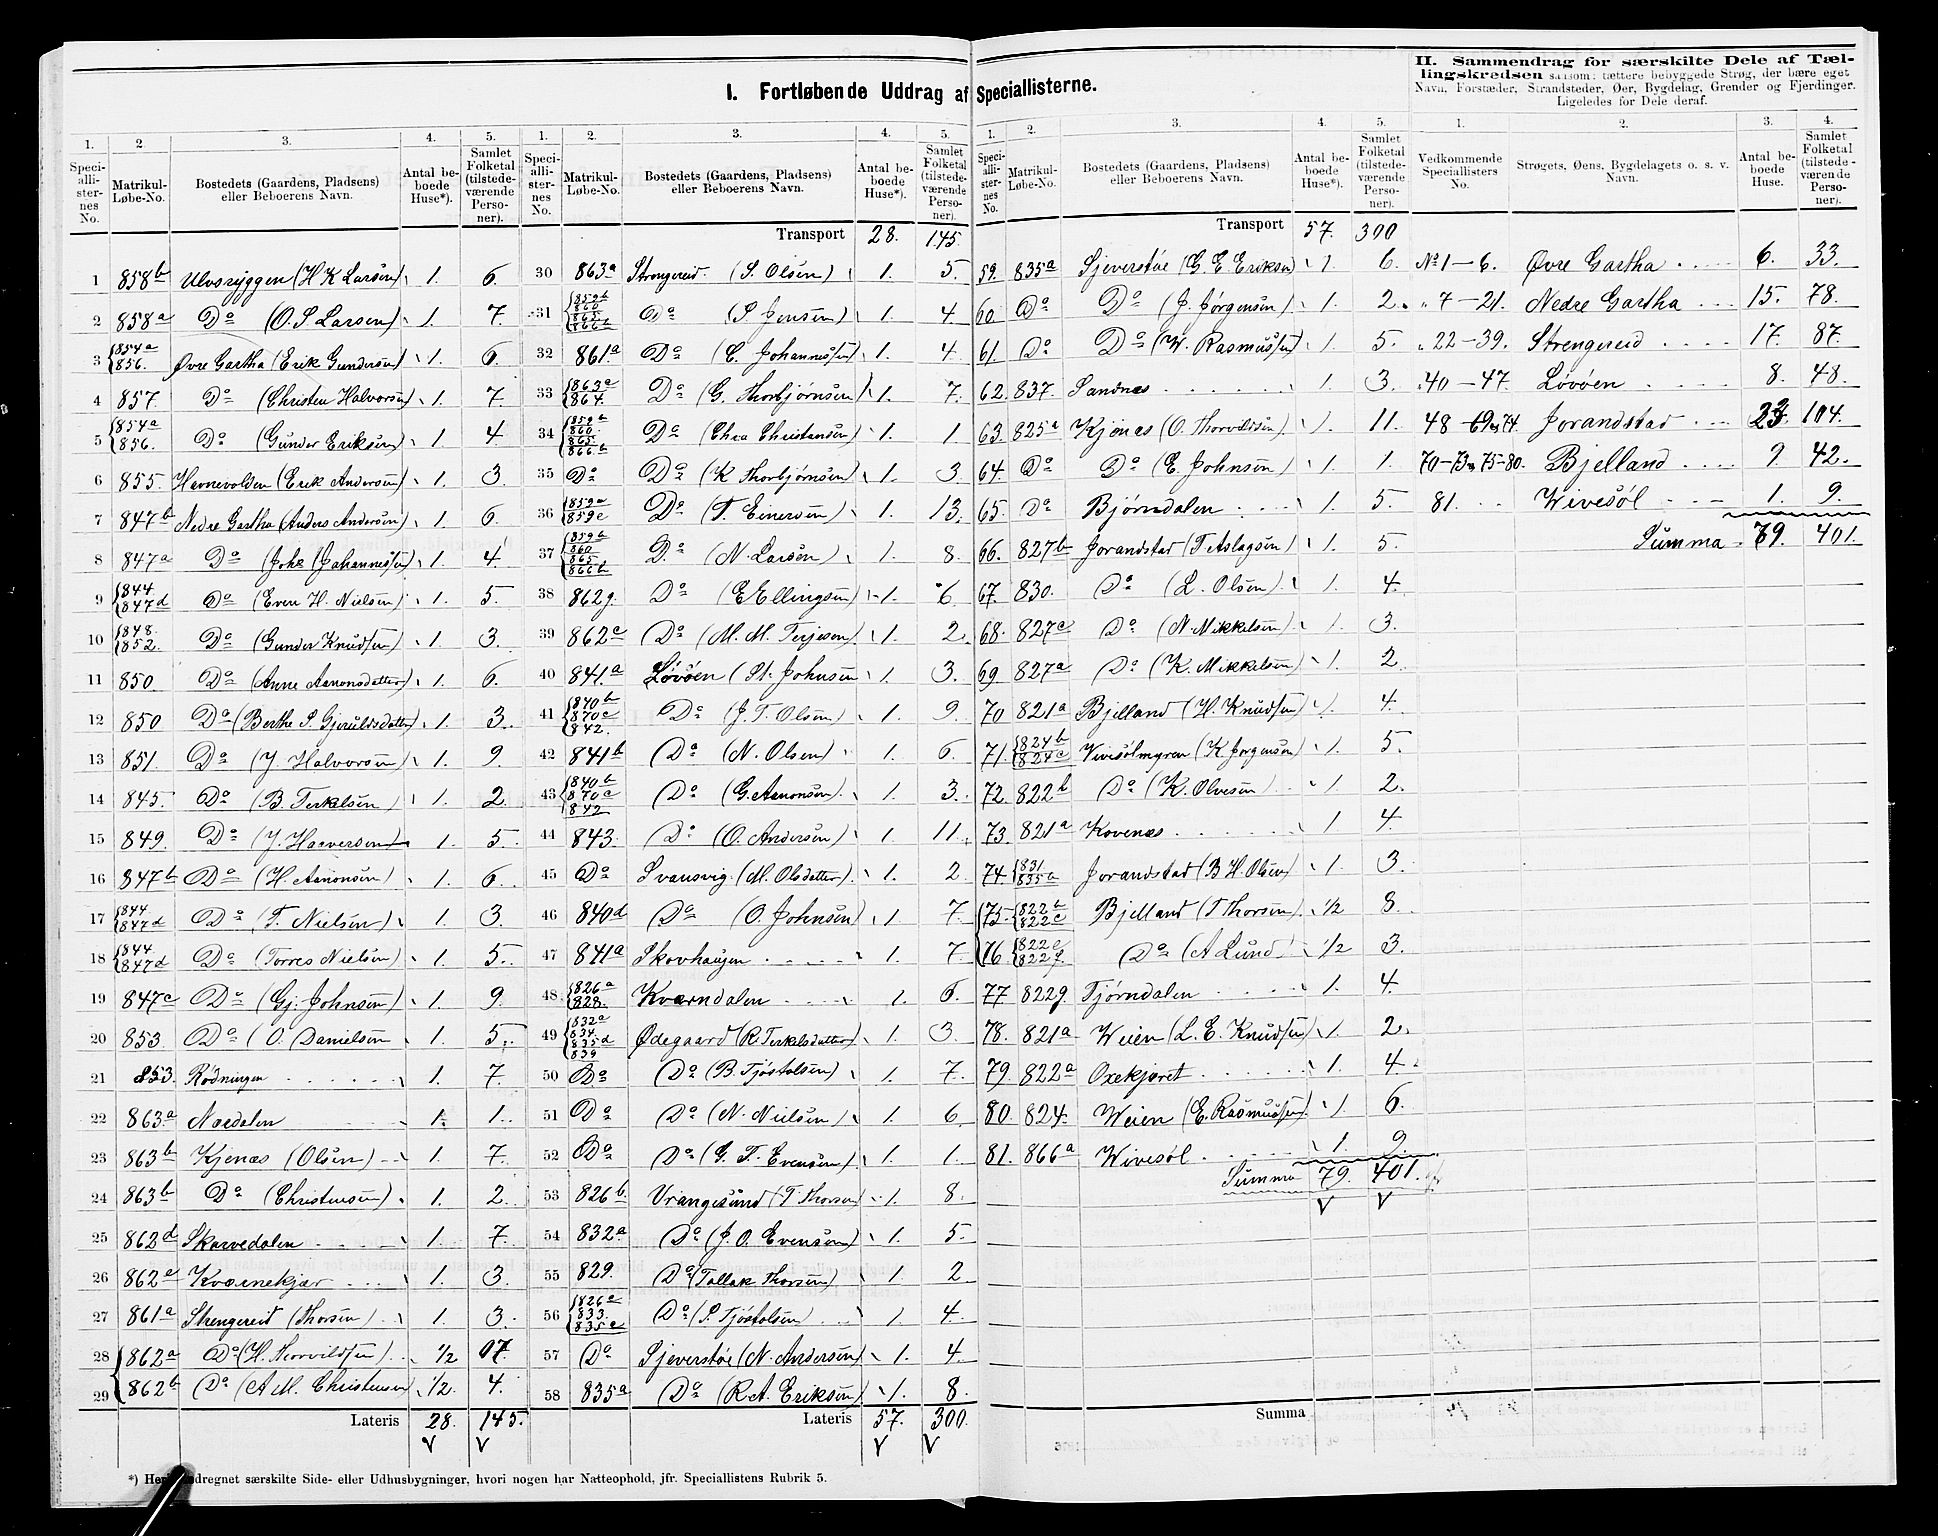 I. Fortløbende Uddrag af Speciallisterne.
II. Sammendrag for særskilte Dele af Tællingskredsen saasom: tættere bebyggede Strøg, der bære eget Navn, Forstæder, Strandsteder, Øer, Bygdelag, Grender og Fjerdinger. Ligeledes for Dele deraf.
1. 2 3. 4. 5.
Speciallisternes No. Matrikul-Løbe-No. Bostedets (Gaardens, Pladsens) eller Beboerens Navn. Antal beboede Huse*). Samlet Folketal (tilstedeværende Personer).
1 858b Ulvsryggen (H K Larsen) 1. 6.
2 858a Do (O. S Larsen) 1. 7.
3 854a 856. Øvre Gartha (Erik Gundersen) 1. 6.
4 857. Do (Christen Halvorsen) 1. 7.
5 854a 856. Do (Gunder Eriksen) 1. 4
6 855. Havnevolden (Erik Andersen) 1. 3.
7 847b Nedre Gartha (Anders Andersen) 1. 6.
8 847a Do (Johs (Johannessen) 1. 4
9 844 847d Do (Even H. Nielsen) 1. 5.
10 848. 852. Do (Gunder Knudsen) 1. 3.
11 850. Do (Anne Aanonsdatter) 1. 6.
12 850 Do (Berthe S. Gjeruldsdatter) 1. 3.
13 851. Do (J. Halvorsen) 1. 9.
14 845. Do (B. Terkelsen) 1. 2.
15 849. Do (J. Haaversen) 1. 5.
16 847b Do (H. Aanonsen) 1. 6.
17 844 847d Do (T. Nielsen) 1. 3.
18 844 847d Do (Torres Nielsen) 1. 5.
19 847c Do (Gj. Johnsen) 1. 9.
20 853. Do (O. Danielsen 1. 5.
21 853. Rødningen 1. 7.
22 863a Naedalen 1. 1.
23 863b Kjenæs (Olsen) 1. 7.
24 863b Do (Christensen) 1. 2.
25 862d Skarvedalen 1. 7.
26 862e Kvarnekjær 1. 3.
27 861a Strengereid (Thorsen) 1. 3.
28 862a Do (H. Thorvildsen) 1/2 07.
29 862b Do (A M. Christensen 1/2. 4.
Lateris 28. 145.
1. 2. 3. 4. 5.
Speciallisternes No. Matrikul-Løbe-No. Bostedets (Gaardens, Pladsens) eller Beboerens Navn. Antal beboede Huse*). Samlet Folketal (tilstedeværende Personer).
Transport 28. 145.
30 863a Strengereid. (S. Olsen) 1. 5.
31 859b 860 865 866b Do (S Jensen) 1. 4.
32 861a Do (C. Johannessen) 1. 4.
33 863a 864. Do (G. Thorbjørnsen) 1. 7.
34 859b 860. 865 866b Do (Chra Christensen) 1. 1
35 Do Do (K Thorbjørnsen) 1. 3.
36 859a 859c Do (T. Einersen) 1. 13.
37 859b 860 865 866b D. (N. Larsen) 1. 8.
38 862g. Do (E Ellingsen) 1. 6.
39 862c Do (M. M. Terjesen) 1. 2.
40 841a Løvøen (St. Johnsen 1. 3.
41 840b 870c 842. Do (J. T. Olsen) 1. 9.
42 841b Do (N. Olsen) 1. 6.
43 840b 870c 842 Do (G. Aanonsen) 1. 3.
44 843. Do (O. Andersen) 1. 11.
45 Do Svansvig. (M. Olsdatter) 1. 2.
46 840d Do (O. Johnsen) 1. 7.
47 841a Skovhaugen 1. 7.
48. 826a 828. Kværndalen 1. 6.
49 832a 834. 835d 839 Ødegaard (R. Terkelsdatter) 1. 3.
50 Do Do (B. Tjøstolsen) 1. 7.
51 Do Do (N. Nielsen) 1. 6
52 Do Do (G. T. Evensen) 1. 1.
53 826b. Vrangesund (T Thorsen) 1. 8.
54 832a Do (J. O. Evensen) 1. 5.
55 829. Do (Tallak Thorsen) 1. 2
56 826a 833. 835c Do (S. Tjøstolsen) 1. 4.
57 Do Sjeverstøe (N. Andersen) 1. 4.
58 835a Do (R A. Eriksen) 1. 8.
Lateris 57. 300.
1. 2. 3. 4. 5.
Speciallisternes No. Matrikul-Løbe-No. Bostedets (Gaardens, Pladsens) eller Beboerens Navn. Antal beboede Huse*). Samlet Folketal (tilstedeværende Personer).
Transport 57. 300
59. 835a Sjeverstøe (G. E. Eriksen 1 6.
60. Do Do (J. Jørgensen) 1. 2.
61. Do Do (W. Rasmussen) 1. 5.
62. 837. Sandnæs 1. 3.
63. 825a Kjönes (O. Thorvildsen) 1. 11.
64. Do Do (E. Johnsen) 1. 1.
65. Do Bjørndalen 1. 5.
66. 827b Jorandstad (T. Aslagsen) 1. 5.
67. 830. Do (L. Olsen) 1. 4.
68. 827c Do (N. Mikkelsen) 1. 3.
69. 827a Do (K. Mikkelsen) 1. 2.
70 821a Bjelland (H. Knudsen) 1. 4.
71. 824b 824c Vivesølmyren (K Jørgensen) 1. 5.
72. 822b Do (K. Olvesen) 1. 2.
73. 821a Kovenæs 1 4.
74. 831 835a Jorandstad (B H. Olsen) 1. 3.
75. 822b 822c Bjelland (T Thorsen) 1/2 8.
76 822c 822f. Do (A Lund) 1/2 3.
77 822g. Tjørndalen 1. 4.
78. 821a Weien (L. E. Knudsen) 1. 2.
79. 822a Oxekjæret 1. 4.
80. 824. Weien (E. Rasmussen) 1. 6.
81. 866a Wivesøl 1. 9.
Summa 79. 401.
Summa
1. 2. 3. 4.
Vedkommende Speciallisters No. Strøgets, Øens, Bygdelagets o. s. v. Navn. Antal beboede Huse. Samlet Folketal (tilstedeværende Personer).
No 1-6. Øvre Gartha 6. 33.
" 7-21. Nedre Gartha 15. 78.
" 22-39. Strengereid 17. 87.
" 40-47. Løvøen 8. 48.
48-69 & 74. Jorandstad 23. 104.
70-73 & 75-80. Bjelland 9. 42.
81. Wivesøl 1. 9.
Summa 79. 401.
*) særskilte Side- eller Udhusbygninger, hvori nogen har Natteophold, jfr. Speciallistens Rubrik 5.